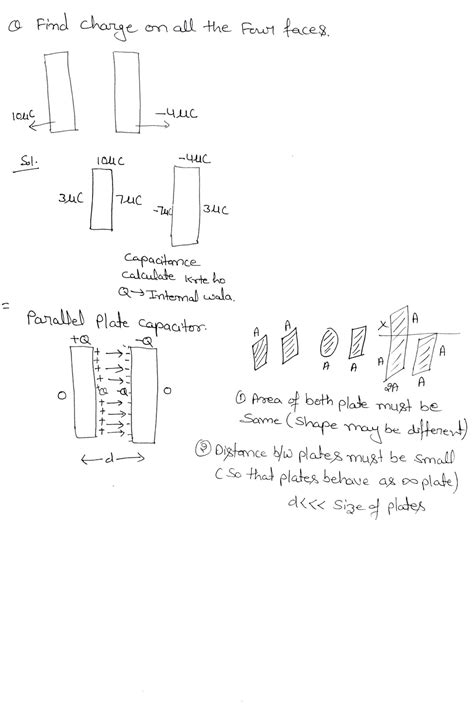 Q Find charge on all the Four faces.
10μC
-4μC
Sol.
10μC
-4μC
3μC
7μC
-7μC
3μC
Capacitance
calculate krte ho
Q → Internal wala.
=
Parallel Plate Capacitor.
+Q
-Q
0
+Q
-Q
0
d
A
A
A
A
X
A
A
2A
A
A
① Area of both plate must be
Same (shape may be different)
② Distance b/w plates must be small
(So that plates behave as ∞ plate)
d<<< Size of plates